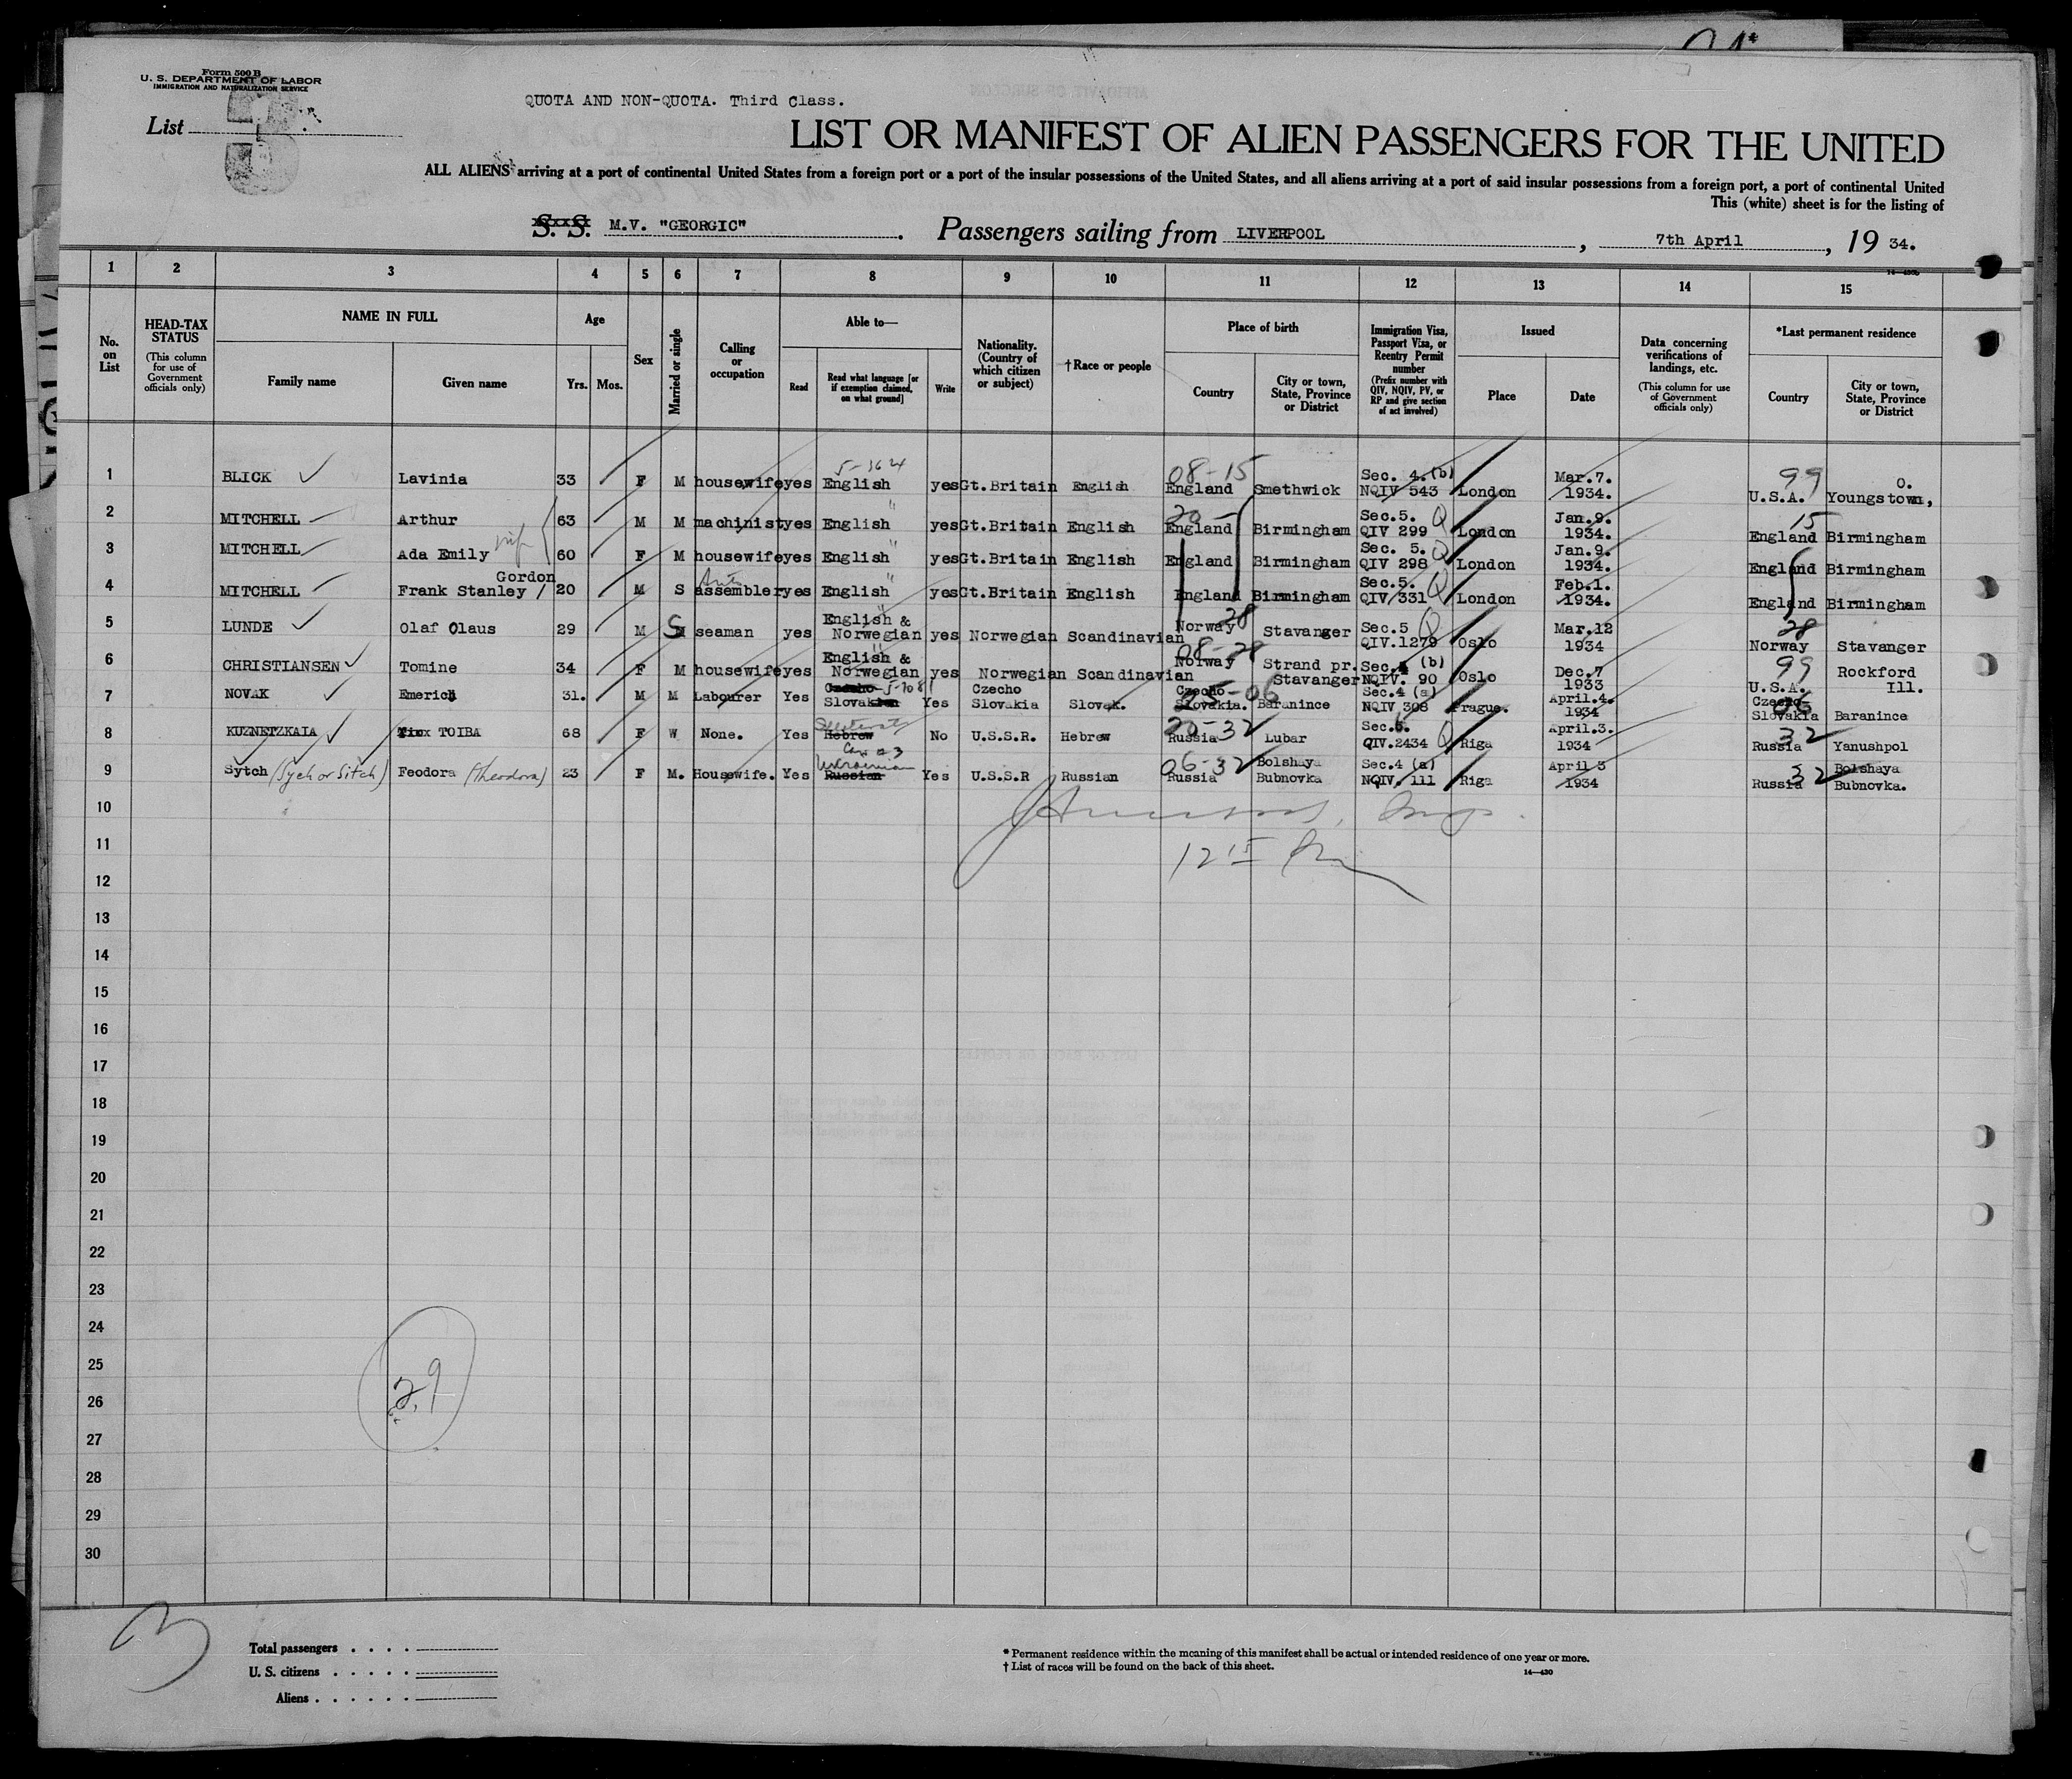 Form 500 B
U. S. DEPARTMENT OF LABOR
IMMIGRATION AND NATURALIZATION SERVICE
List
QUOTA AND NON-QUOTA. Third Class.
LIST OR MANIFEST OF ALIEN PASSENGERS FOR THE UNITED
ALL ALIENS arriving at a port of continental United States from a foreign port or a port of the insular possessions of the United States, and all aliens arriving at a port of said insular possessions from a foreign port, a port of continental United
This (white) sheet is for the listing of
S. S. M.V. "GEORGIC". Passengers sailing from LIVERPOOL, 7th April, 19 34.
14—430b
1 2 3 4 5 6 7 8 9 10 11 12 13 14 15
No. on List
HEAD-TAX STATUS (This column for use of Government officials only)
NAME IN FULL
Family name
Given name
Age
Yrs. Mos.
Sex
Married or single
Calling or occupation
Able to—
Read
Read what language [or if exemption claimed, on what ground]
Write
Nationality. (Country of which citizen or subject)
†Race or people
Place of birth
Country
City or town, State, Province or District
Immigration Visa, Passport Visa, or Reentry Permit number (Prefix number with QIV, NQIV, PV, or RP and give section of act involved)
Issued
Place
Date
Data concerning verifications of landings, etc. (This column for use of Government officials only)
*Last permanent residence
Country
City or town, State, Province or District
1 BLICK Lavinia 33 F M housewife yes 5-364 English yes Gt.Britain English 08-15 England Smethwick Sec. 4.(b) NQIV 543 London Mar.7. 1934. 99 U.S.A. Youngstown, O.
2 MITCHELL Arthur 63 M M machinist yes English " yes Gt.Britain English 20- England Birmingham Sec.5. Q QIV 299 London Jan.9. 1934. 15 England Birmingham
3 MITCHELL Ada Emily wife 60 F M housewife yes English " yes Gt.Britain English England Birmingham Sec. 5. Q QIV 298 London Jan.9. 1934. England Birmingham
4 MITCHELL Frank Stanley / Gordon 20 M S Auto assembler yes English " yes Gt.Britain English England Birmingham Sec.5. Q QIV 331 London Feb.1. 1934. England Birmingham
5 LUNDE Olaf Olaus 29 M S seaman yes English & Norwegian yes Norwegian Scandinavian Norway 28 Stavanger Sec.5 Q QIV.1279 Oslo Mar.12 1934 28 Norway Stavanger
6 CHRISTIANSEN Tomine 34 F M housewife yes English & Norwegian yes Norwegian Scandinavian 08-28 Norway Strand pr. Stavanger Sec.4 (b) NQIV. 90 Oslo Dec.7 1933 99 U.S.A. Rockford Ill.
7 NOVAK Emerich 31. M M Labourer Yes Czecho Slovakian Yes Czecho Slovakia Slovak. Czecho Slovakia. 25-06 Baranince Sec.4 (a) NQIV 308 Prague. April.4. 1934 Czecho Slovakia 06 Baranince
8 KUZNETZKAIA TOIBA 68 F W None. Yes Hebrew No U.S.S.R. Hebrew 20-32 Russia Lubar Sec.6. QIV.2434 Q Riga April.3. 1934 32 Russia Yanushpol
9 Sytch (Sych or Sitch) Feodora (Theodora) 23 F M. Housewife. Yes Ukrainian Russian Yes U.S.S.R Russian 06-32 Russia Bolshaya Bubnovka Sec.4 (a) NQIV. 111 Riga April 3 1934 32 Russia Bolshaya Bubnovka.
10
11
12
13
14
15
16
17
18
19
20
21
22
23
24
25
26
27
28
29
30
29
Total passengers
U. S. citizens
Aliens
* Permanent residence within the meaning of this manifest shall be actual or intended residence of one year or more.
† List of races will be found on the back of this sheet.
14—430